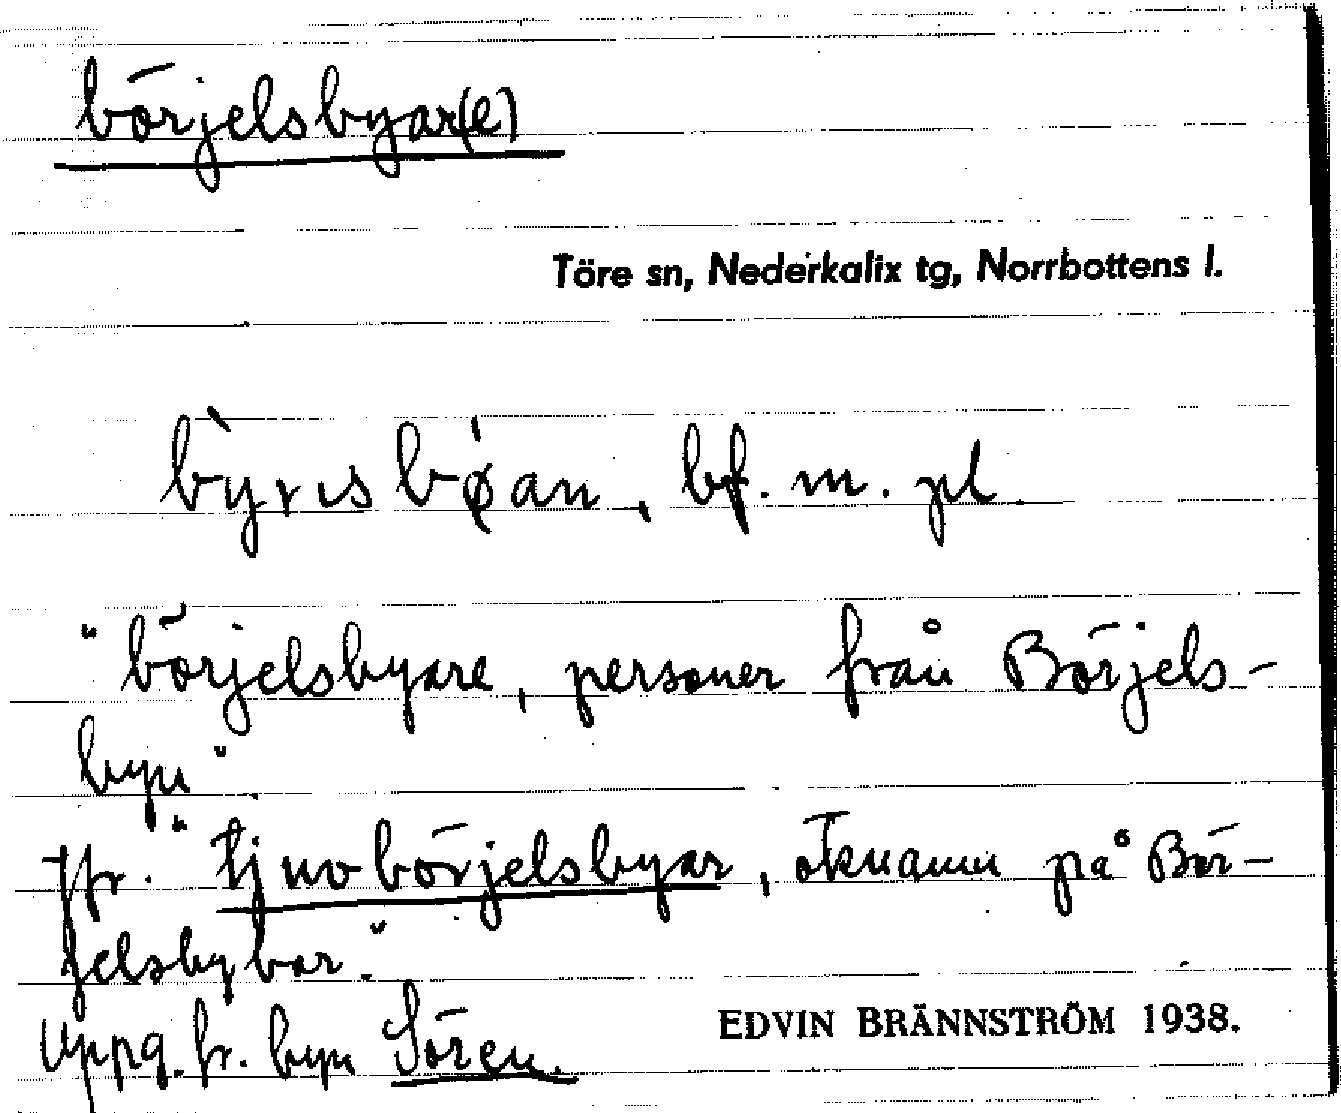 börjelsbyar(e)
Töre sn, Nederkalix tg, Norrbottens l.
bỳrısbǿan, bf. m. pl.
"börjelsbyare, personer från Börjels-
byn"
Jfr. "tjuvbörjelsbyar, öknamn på Bör-
jelsbybor."
Uppg. fr. byn Sören.
EDVIN BRÄNNSTRÖM 1938.